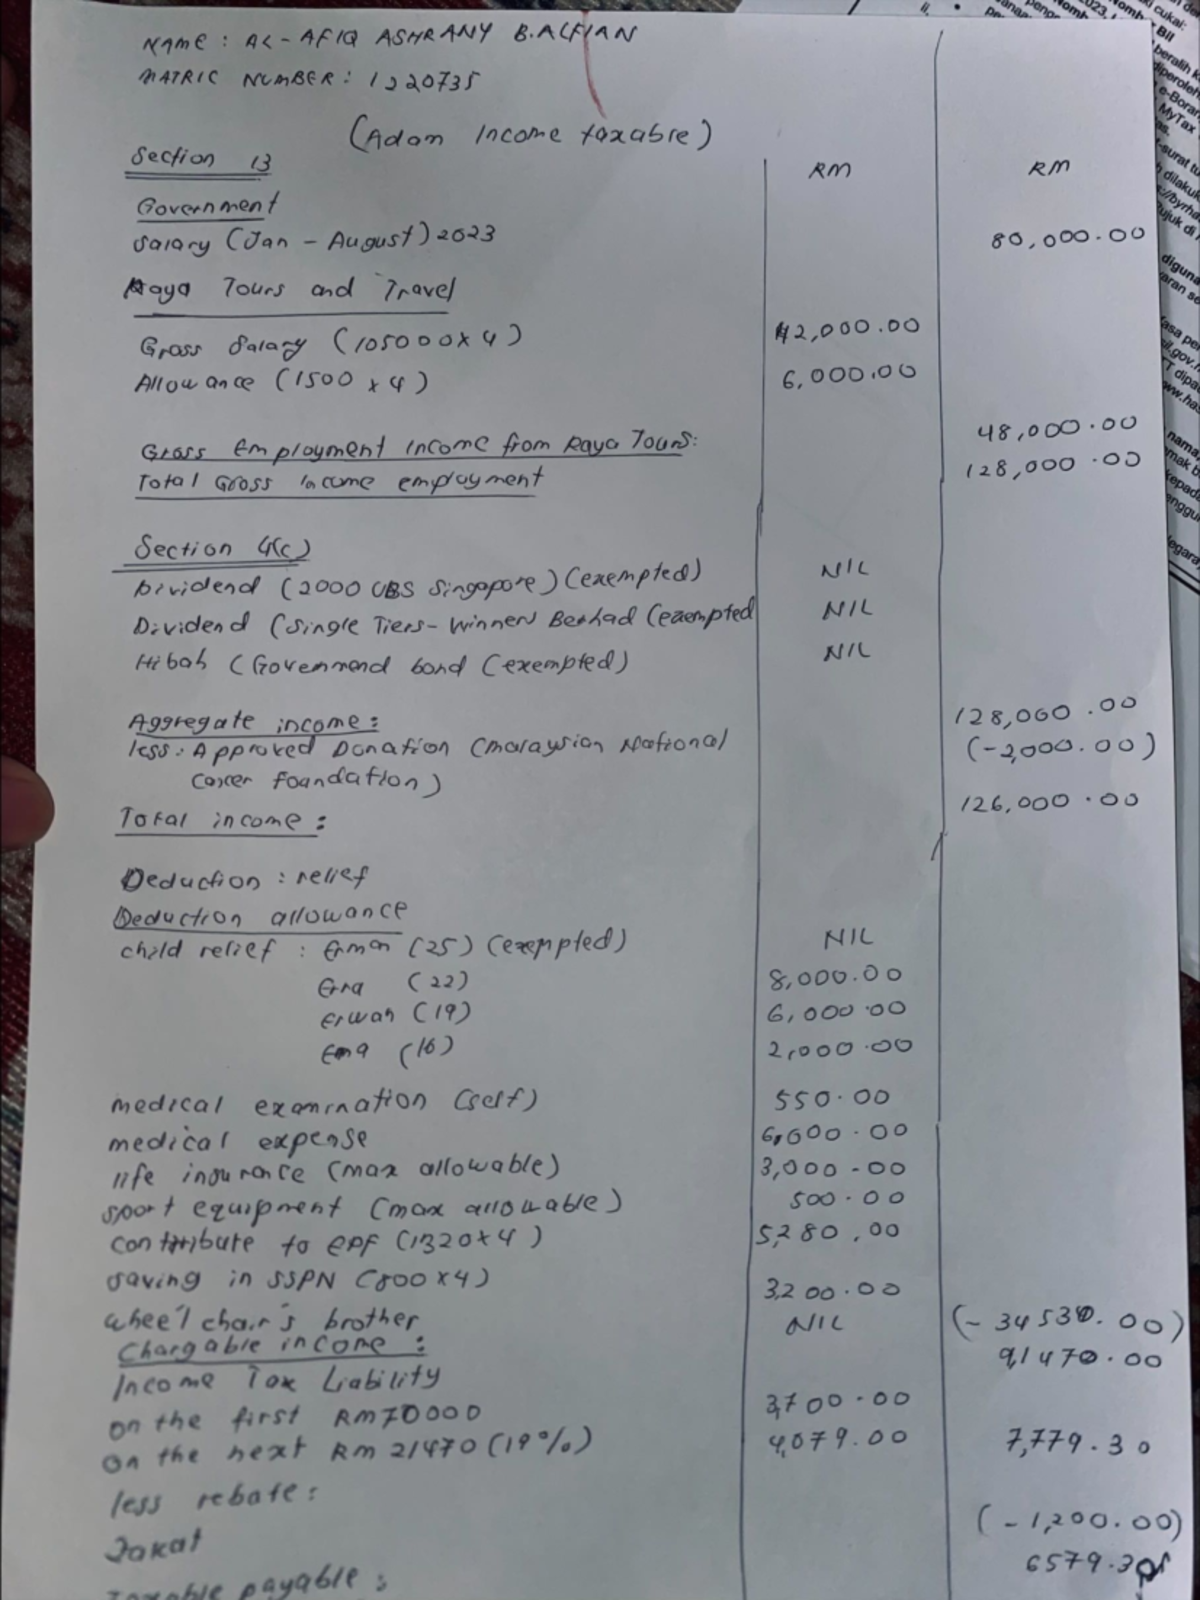 NAME : AL-AFIQ ASHRANY B.ALFIAN
MATRIC NUMBER : 1220735
(Adam Income taxable)
Section 13
RM RM
Government
Salary (Jan - August) 2023 80,000.00
Raya Tours and Travel
Gross Salary (105000 x 4) 42,000.00
Allowance (1500 x 4) 6,000.00
Gross Employment Income from Raya Tours: 48,000.00
Total Gross Income employment 128,000.00
Section 4(c)
Dividend (2000 UBS Singapore) (exempted) NIL
Dividend (Single Tiers - Winners Berhad (exempted NIL
Hibah (Governmend bond (exempted) NIL
Aggregate income : 128,000.00
less : Approved Donation (malaysian National (-2,000.00)
Cancer foundation)
Total income : 126,000.00
Deduction : relief
Deduction allowance
child relief : Erman (25) (exempted) NIL
Erra (22) 8,000.00
Erwan (19) 6,000.00
Ema (16) 2,000.00
medical examination (self) 550.00
medical expense 6,000.00
life insurance (max allowable) 3,000.00
sport equipment (max allowable) 500.00
contribute to EPF (1320x4) 5,280.00
saving in SSPN (800x4) 3,200.00
wheel chair's brother NIL (- 34530.00)
Chargable income : 91470.00
Income Tax Liability
on the first RM70000 3,700.00
on the next RM 21470 (19%) 4,079.00 7,779.30
less rebate :
Zakat (- 1,200.00)
Taxable payable : 6579.30